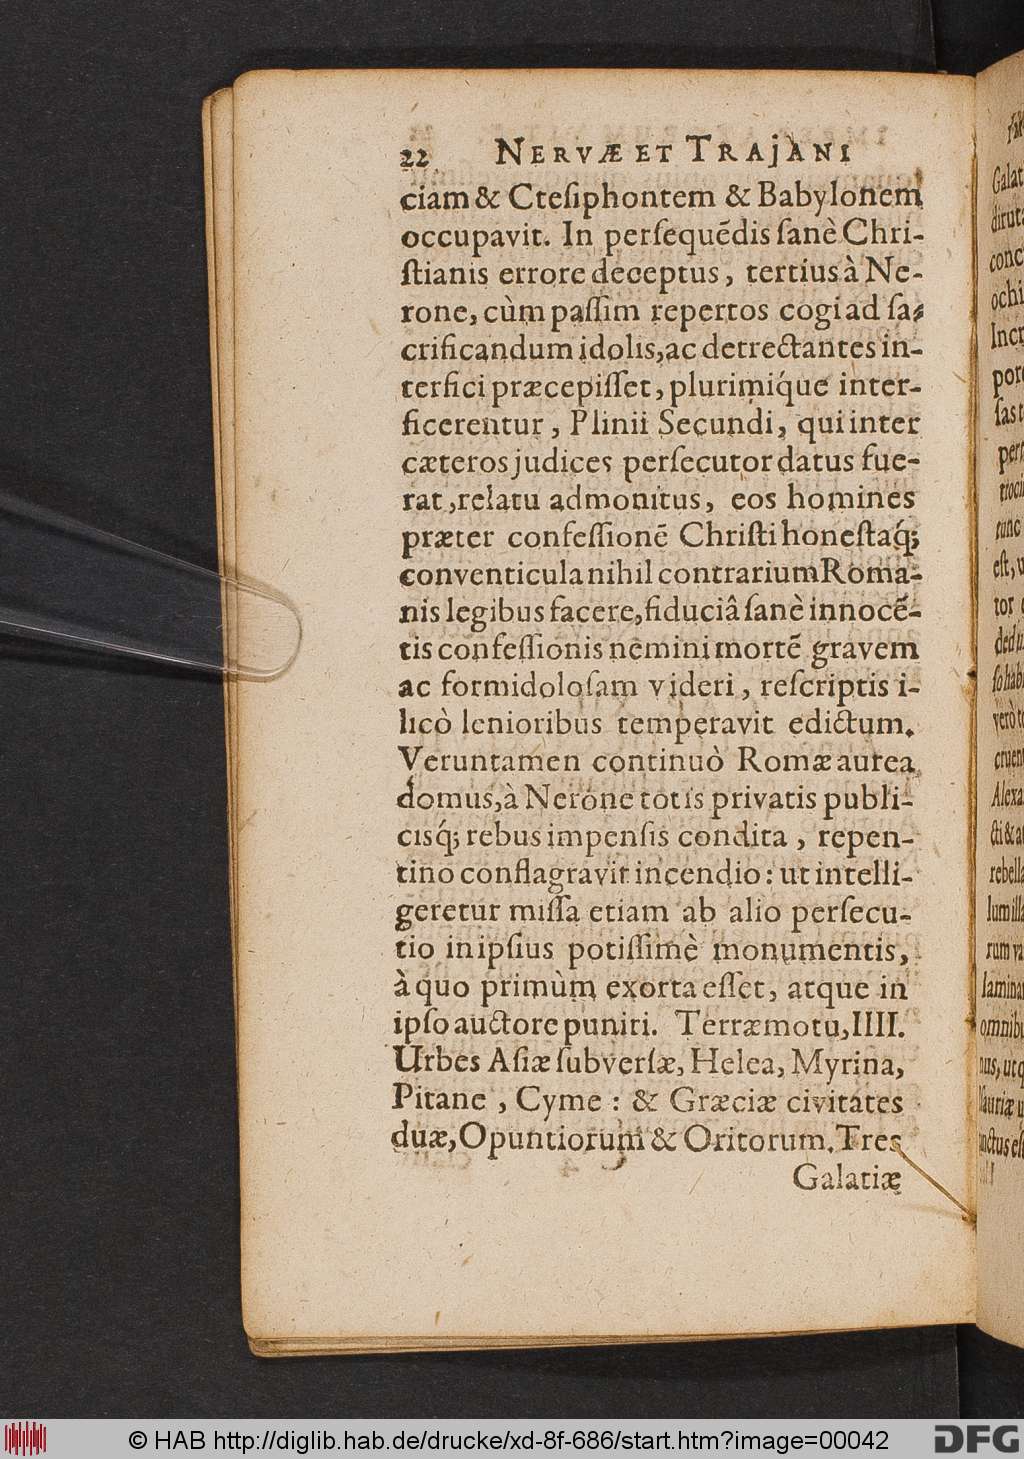 22 NERVÆ ET TRAJANI
ciam & Ctesiphontem & Babylonem
occupavit. In persequēdis sanè Chri-
stianis errore deceptus, tertius à Ne-
rone, cùm passim repertos cogi ad sa-
crificandum idolis, ac detrectantes in-
terfici præcepisset, plurimiq́ue inter-
ficerentur, Plinii Secundi, qui inter
cæteros judices persecutor datus fue-
rat, relatu admonitus, eos homines
præter confessionē Christi honestaq́;
conventicula nihil contrarium Roma-
nis legibus facere, fiduciâ sanè innocē-
tis confessionis nemini mortē gravem
ac formidolosam videri, rescriptis i-
licò lenioribus temperavit edictum.
Veruntamen continuò Romæ aurea
domus, à Nerone totis privatis publi-
cisq́; rebus impensis condita, repen-
tino conflagravit incendio: ut intelli-
geretur missa etiam ab alio persecu-
tio in ipsius potissimè monumentis,
à quo primùm exorta esset, atque in
ipso auctore puniri. Terræmotu, IIII.
Urbes Asiæ subversæ, Helea, Myrina,
Pitane, Cyme: & Græciæ civitates
duæ, Opuntiorum & Oritorum. Tres
Galatiæ
Galat
diruta
conc
ochi
Incr
pore
fas t
perr
troci
tunc
est, u
tor
dedu
so hab
verò t
cruen
Alexa
cti & a
rebella
lum illa
rum va
laminar
omnibu
nus, utq
Mauriæ u
nctus es
© HAB http://diglib.hab.de/drucke/xd-8f-686/start.htm?image=00042
DFG